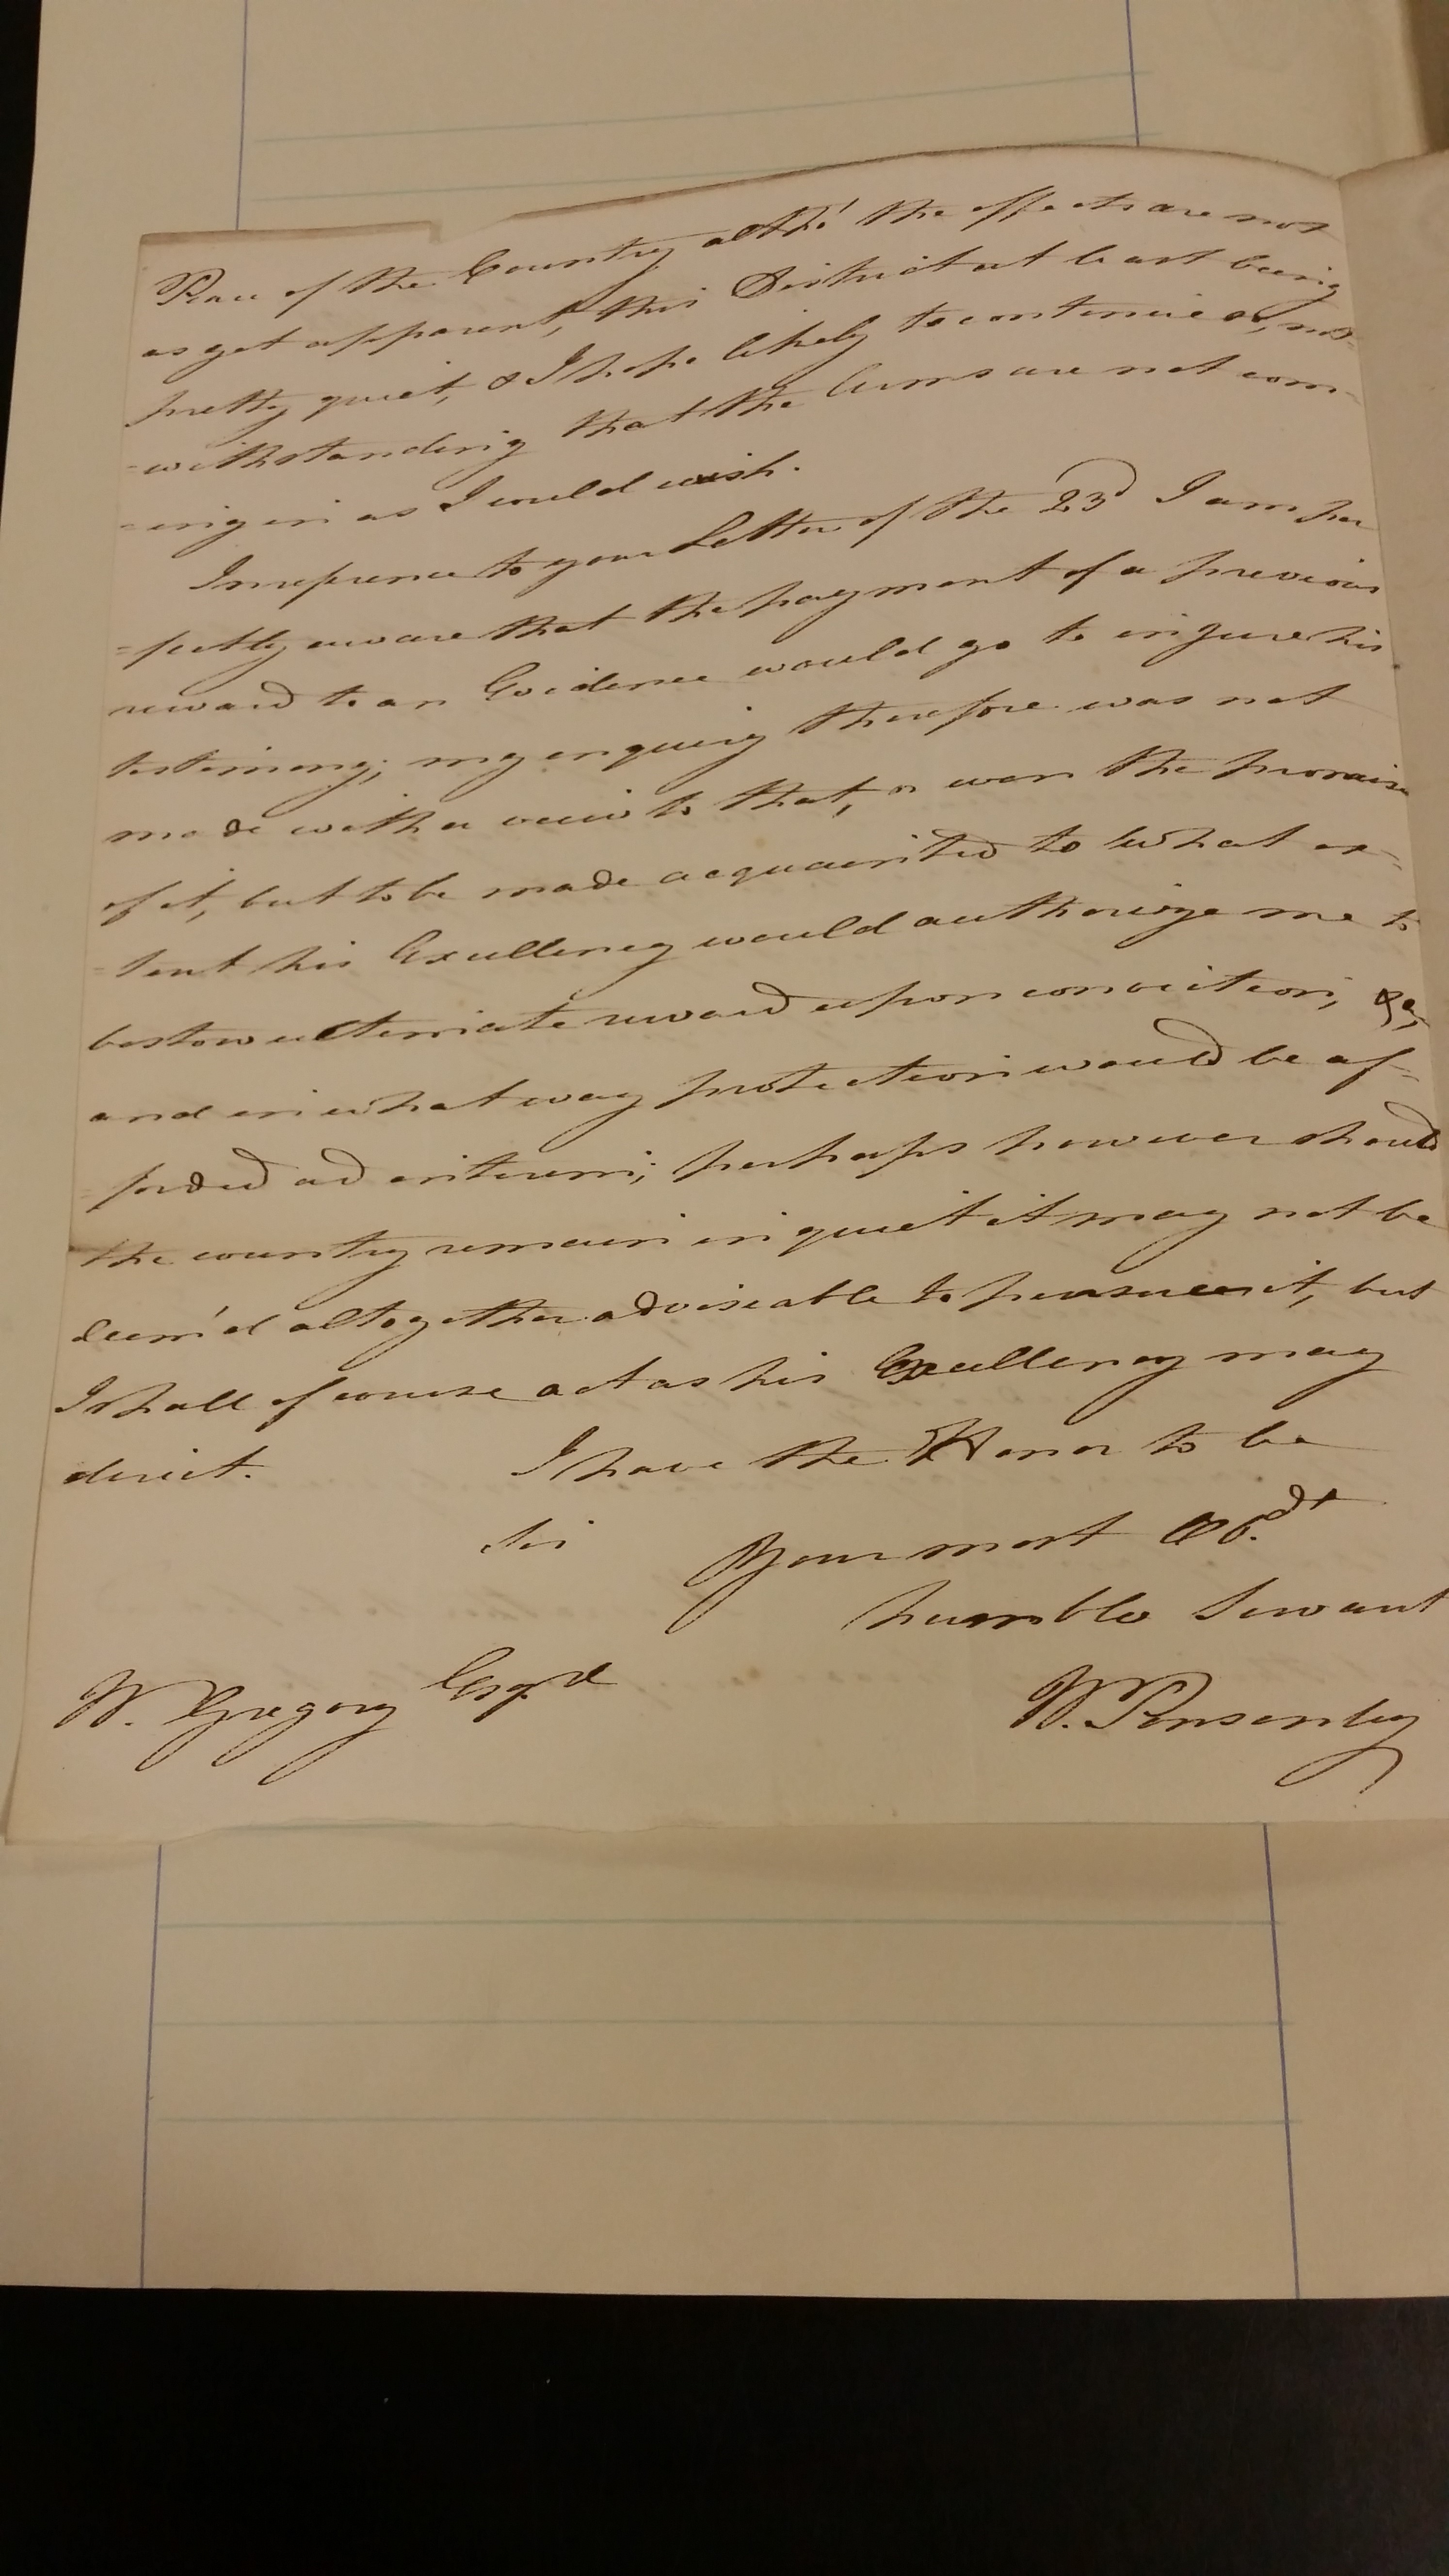 Peace of the Country altho' the effects are not
as yet apparent, this District at least being
pretty quiet, & I hope likely to continue so, not=
=withstanding that the Arms are not com=
=ing in as I could wish.
In reference to your Letter of the 23d I am per
=fectly aware that the payment of a previous
reward to an Evidence would go to injure his
testimony; my enquiry therefore was not
made with a view to that, or even the promise
of it, but to be made acquainted to what ex=
=tent his Excellency would authorize me to
bestow ulteriate reward upon conviction, &c,
and in what way protection would be af=
=forded ad interim; perhaps however should
the country remain in quiet it may not be
deem'd altogether adviseable to pursue it, but
I shall of course act as his Excellency may
direct. I have the Honor to be
Sir Your most Ob.dt
humble Servant
W. Gregory Esqre W. Ponsonby